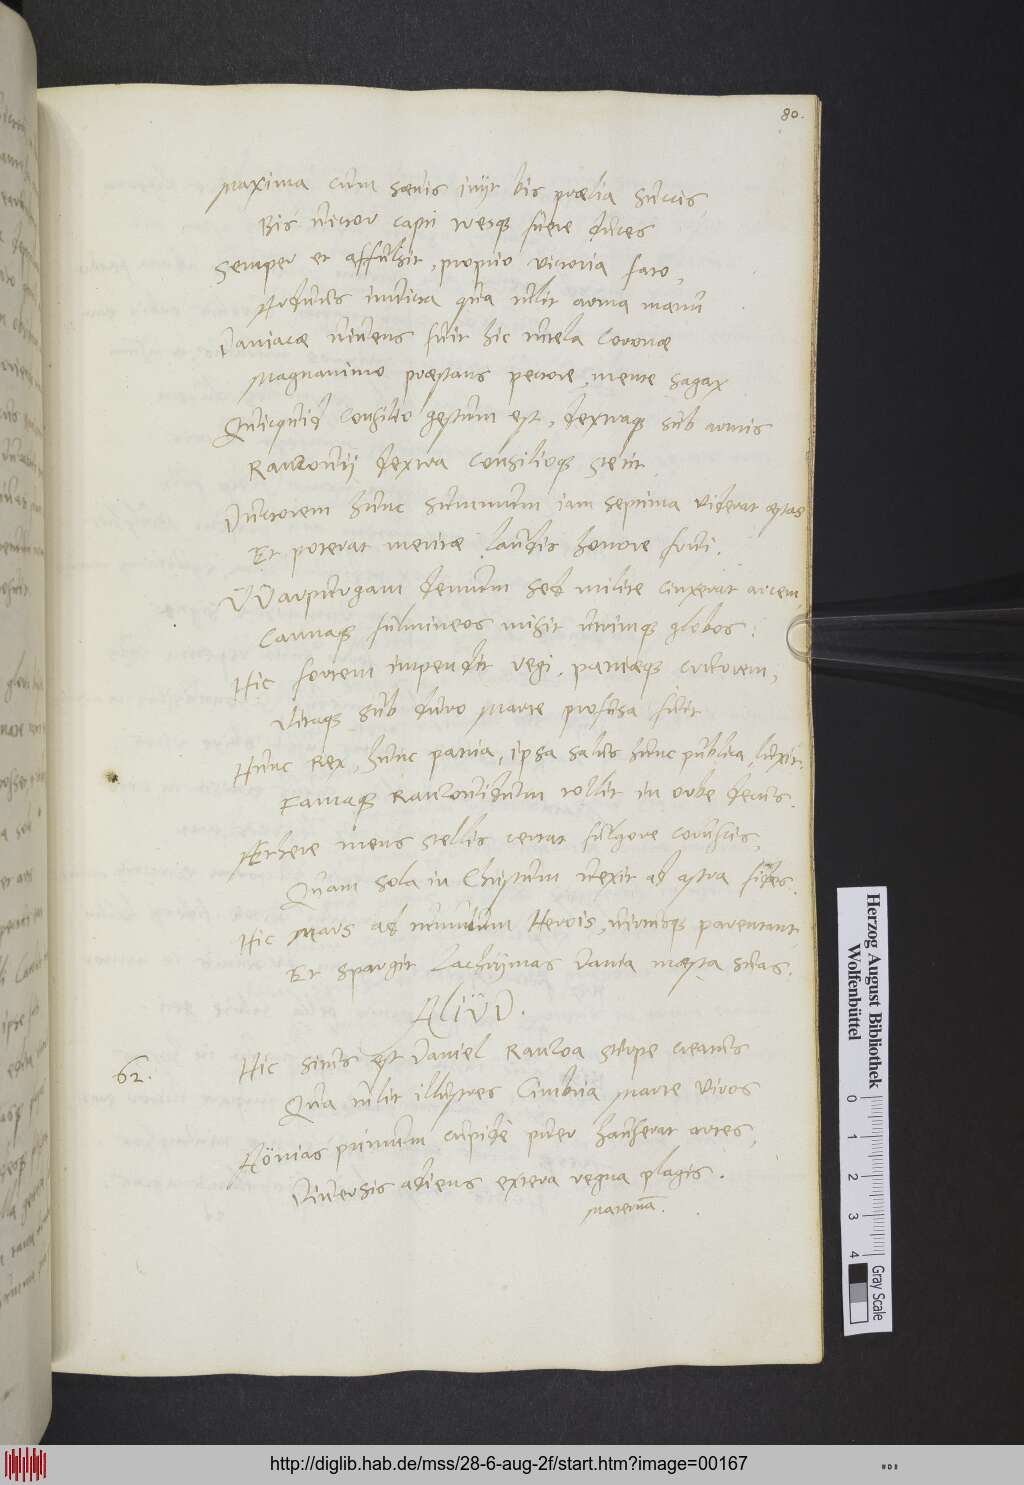 80.
Maxima cum sævis iniit bis prælia Suecis,
Bis victor capti tresq; fuere duces
Semper et affulsit, proprio victoria fato,
Arduus invicta qua tulit arma manu
Daniacæ vivens fuit hic tutela Coronæ
Magnanimo præstans pectore, mente sagax
Quicquid Consilio gestum est, dextraq; sub armis
Ranzovij dextra Consilioq; stetit.
Ductorem hunc summum iam septima viderat æstas
Et poterat meritæ laudis honore frui.
VVarpurgam demum sed milite cinxerat arcem,
Cannaq; fulmineos misit utrinq; globos:
Hic fortem impendit regi, patriæq; cruorem,
Vitaq; sub duro Marte profusa fuit
Hunc Rex, hunc patria, ipsa salus hunc publica, luxit.
Famaq; Ranzovidum tollit in orbe decus.
Æthere mens stellis certat fulgore coruscis,
Quam sola in Christum vexit ad astra fides.
Hic Mars ad tumulum Herois, virtusq; parentant,
Et spargit Lachrymas Dania mæsta suas.
ALIUD.
62.
Hic situs est Daniel Ranzoa stirpe creatus
Qua tulit illustres Cimbria Marte viros
Aönias primum cupide puer hauserat artes,
Diversis adiens extera regna plagis.
Maternā.
Herzog August Bibliothek
Wolfenbüttel
0 1 2 3 4
Gray Scale
http://diglib.hab.de/mss/28-6-aug-2f/start.htm?image=00167